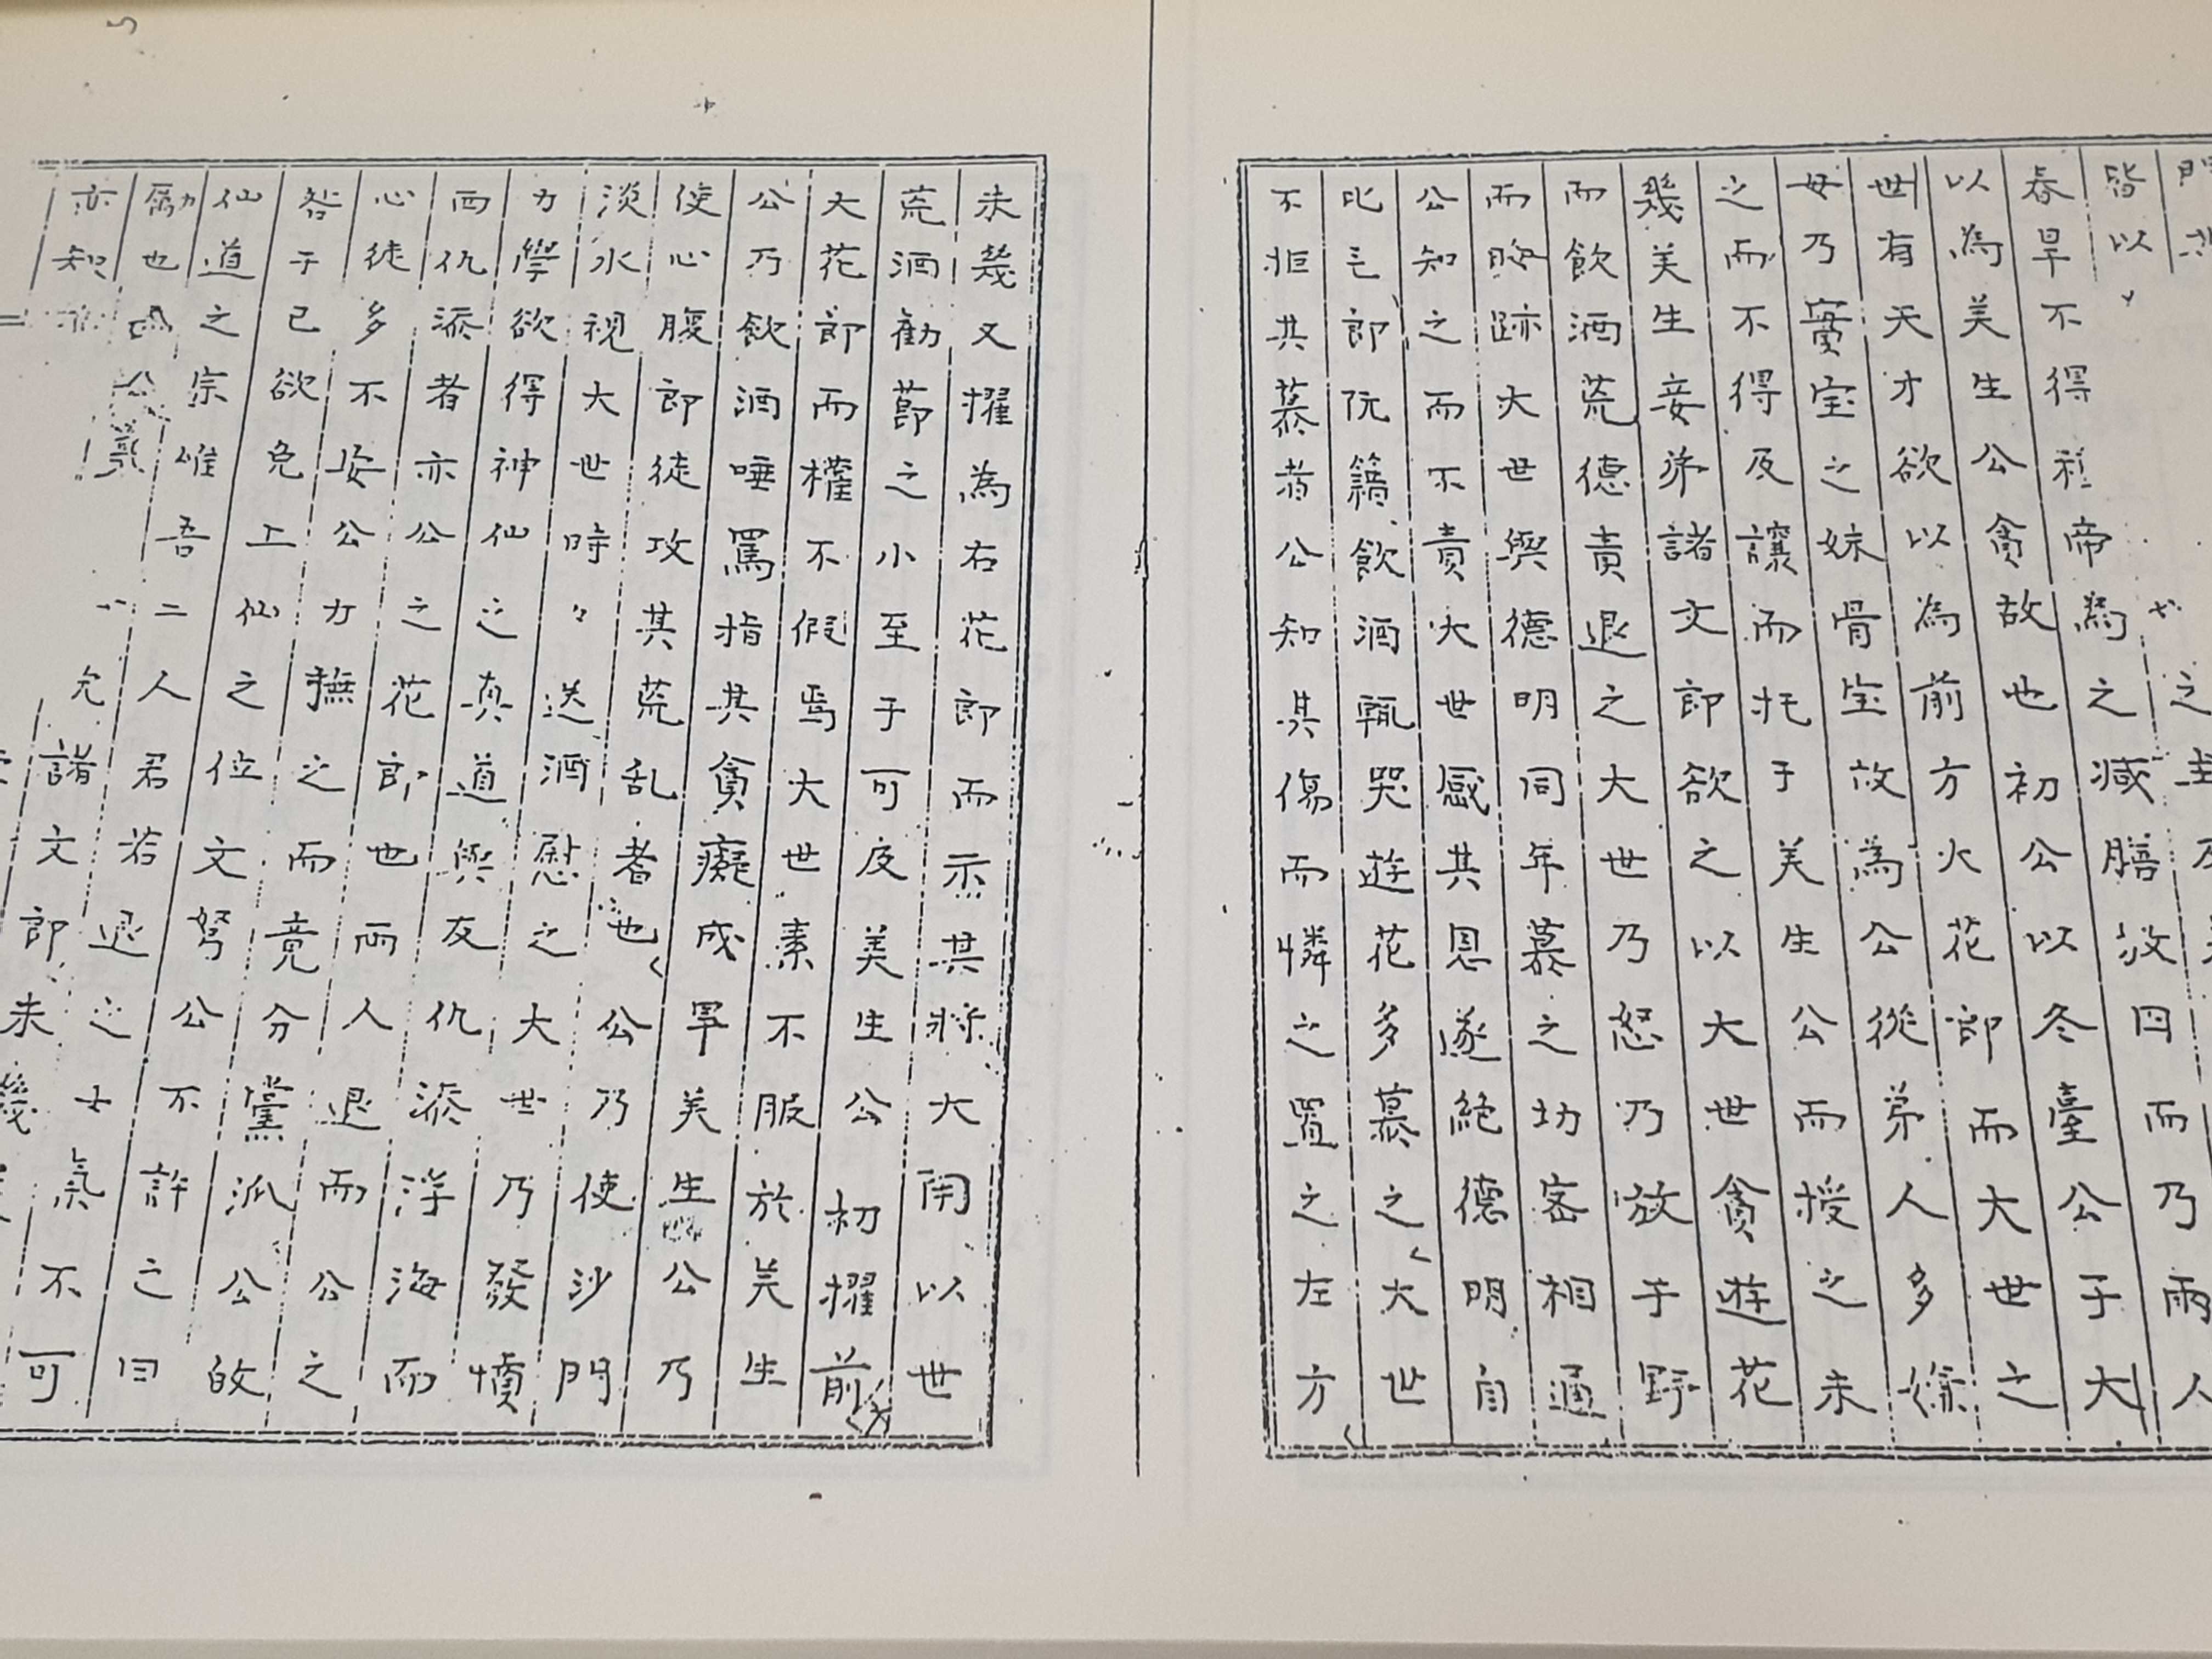 皆以
春旱不得 帝為之减膳放囚而乃雨
以為美生公貪故也初公以冬臺公于大
世有天才欲以為前方火花郎而大世之
母乃實宝之妹骨宝故為公從弟人多
之而不得及讓而托于美生公而授之未
幾美生妾弟諸文郎欲之以大世貪遊花
而飲酒荒德責退之大世乃怒乃放于野
而晦跡大世與德明同年慕之切密相通
公知之而不責大世感其恩遂絶德明自
比毛郎阮籍飲酒輒哭遊花多慕之大世
不拒其慕者公知其傷而憐之置之左方
未幾又擢為右花郎而示其將大用以世
荒酒勸節之小至于可及美生公初擢前
大花郎而權不假焉大世素不服於美生
公乃飲酒唾罵指其貪癡成旱美生公乃
使心腹郎徒攻其荒乱者也公乃使沙門
淡水視大世時々送酒慰之大世乃發憤
力學欲得神仙之真道與友仇添浮海而
西仇添者亦公之花郎也而人退而公之
心徒多不安公力撫之而竟分黨派公故
咎于已欲免工仙之位文弩公不許之曰
仙道之宗唯吾二人君若退之士氣不可
勵也 公 允諸文郎未幾
亦知